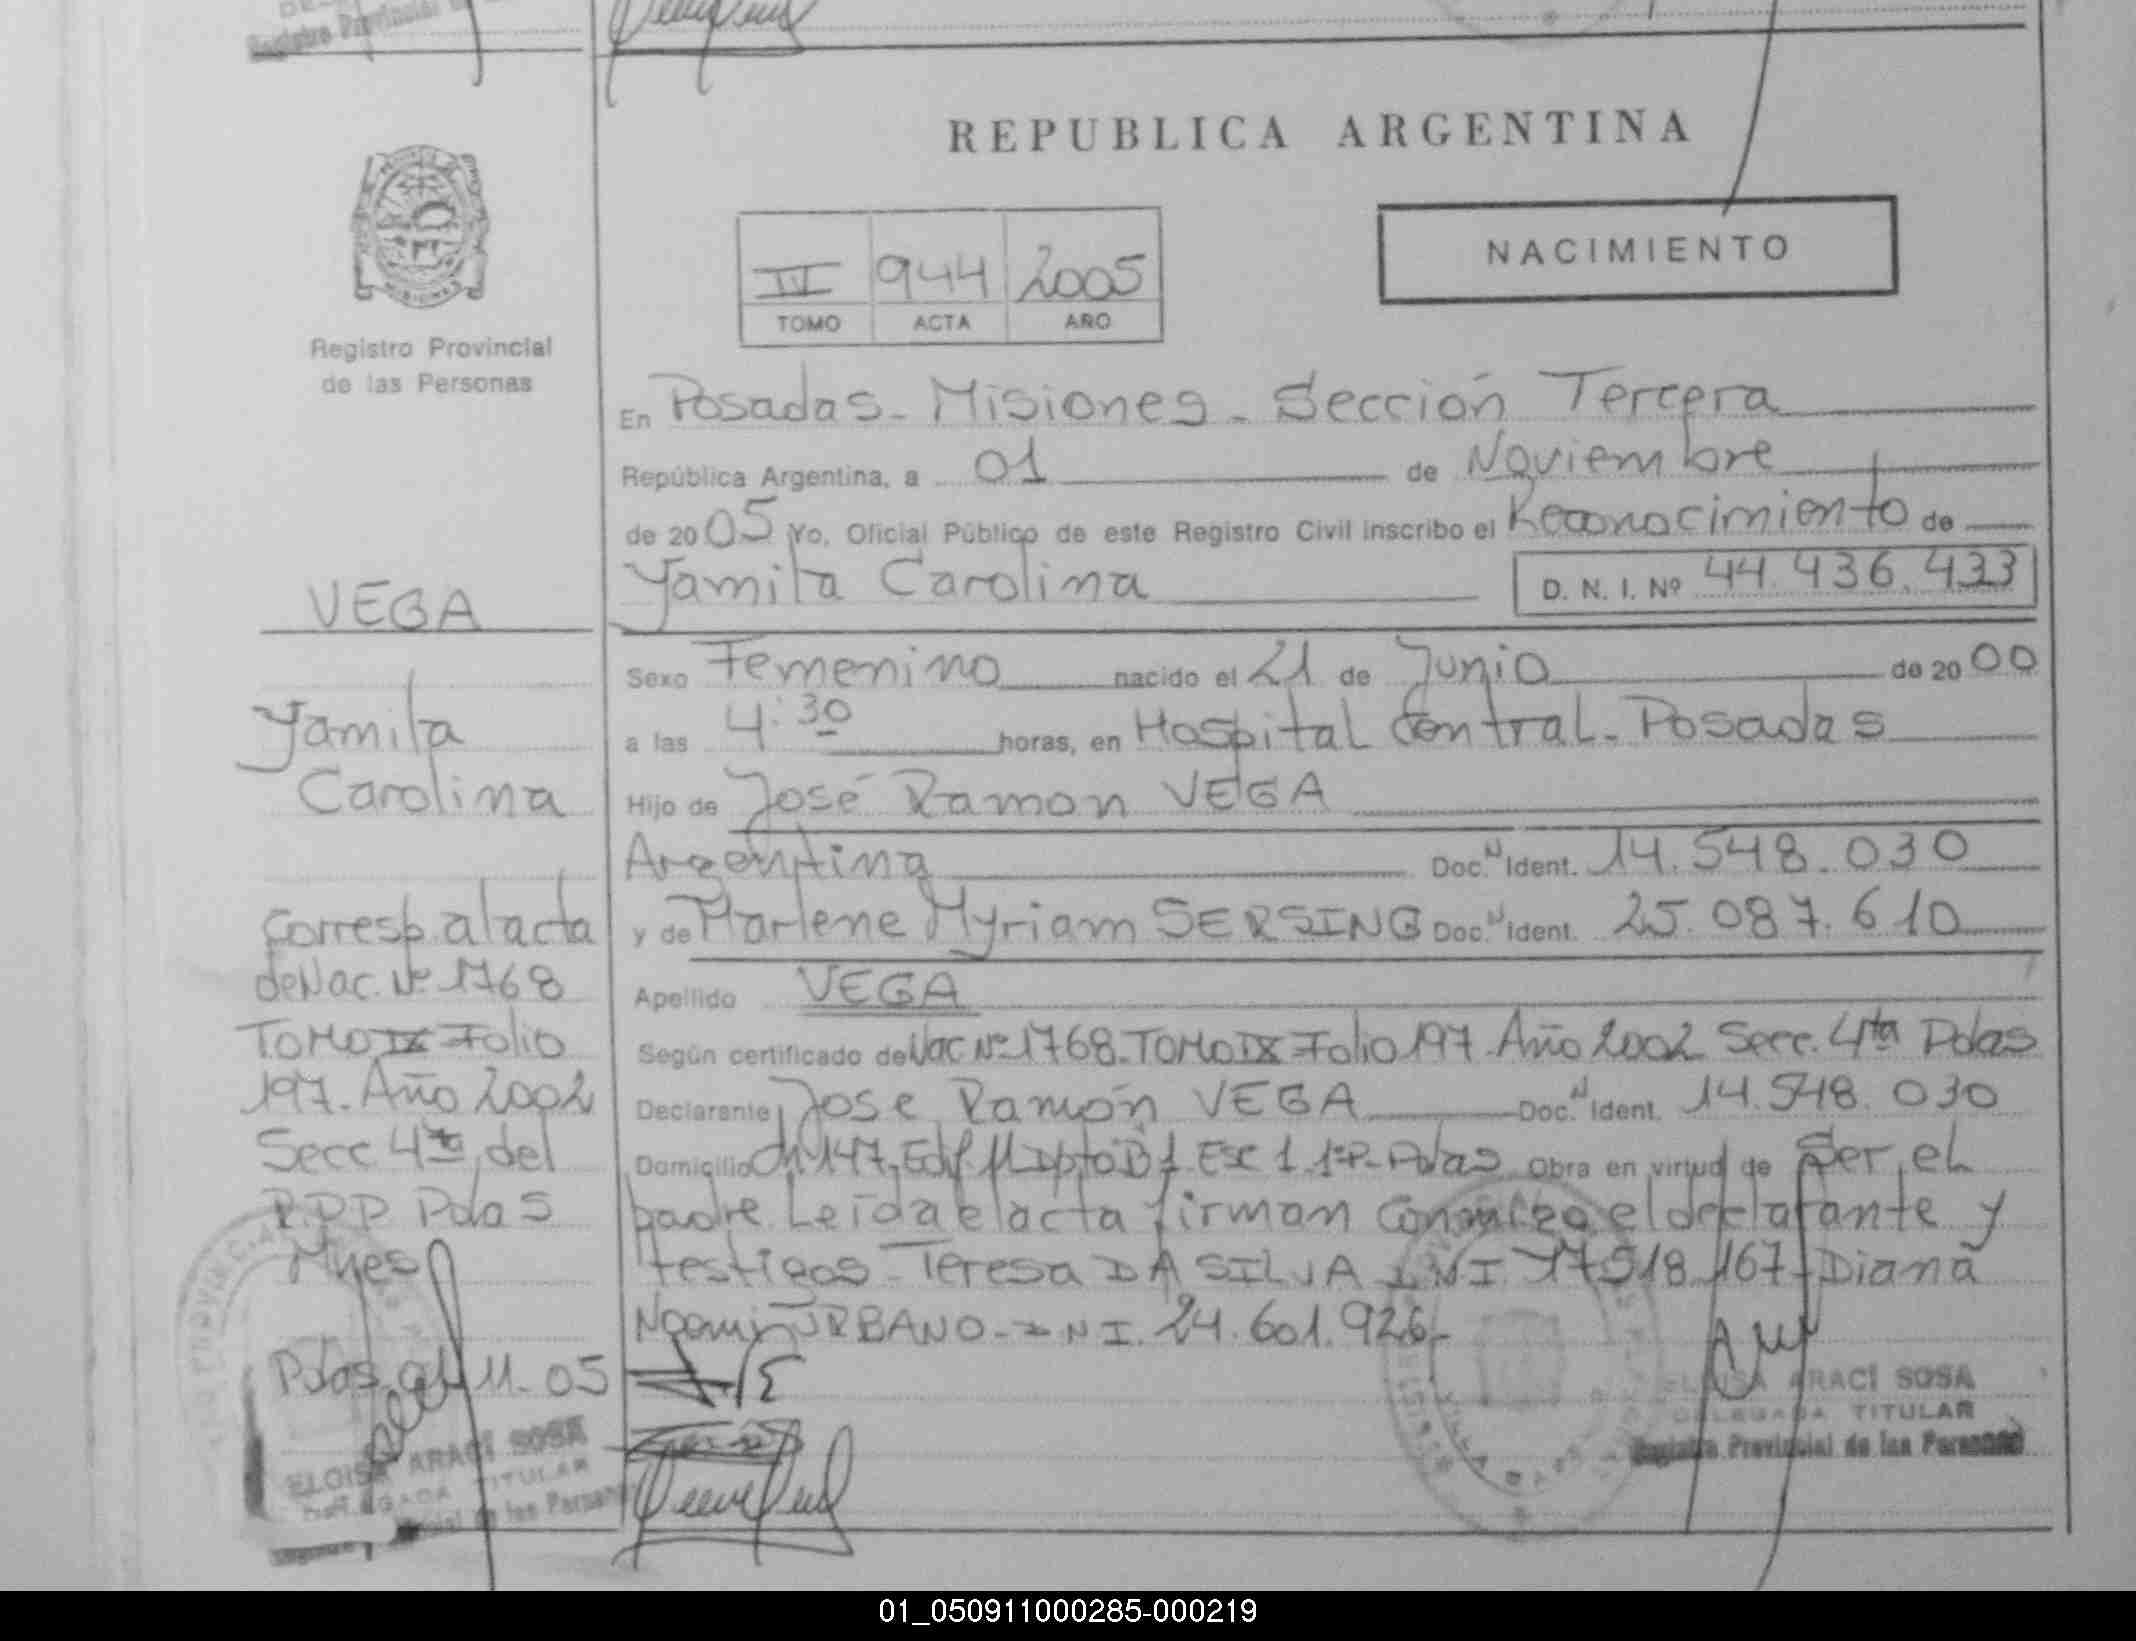 REPUBLICA ARGENTINA
NACIMIENTO
IV 944 2005
TOMO ACTA AÑO
MISIONES
Registro Provincial
de las Personas
En Posadas - Misiones - Sección Tercera
República Argentina, a 01 de Noviembre
de 2005 Yo, Oficial Público de este Registro Civil inscribo el Reconocimiento de
Yamila Carolina D. N. I. Nº 44.436.433
Sexo Femenino nacido el 21 de Junio de 2000
a las 4:30 horas, en Hospital Central - Posadas
Hijo de José Ramon VEGA
Argentina Doc. N Ident. 14.548.030
y de Marlene Myriam SERSING Doc. N Ident. 25.087.610
Apellido VEGA
Según certificado de Nac Nº 1768 - TOMO IX Folio 197 - Año 2002 Secc. 4ta Pdas
Declarante Jose Ramón VEGA Doc. N Ident. 14.548.030
Domicilio Ch 147, Edif Dpto B1 Esc 1 1ºP - Pdas Obra en virtud de Ser el
padre. Leída el acta firman conmigo el declarante y
testigos - Teresa DA SILVA DNI 17.518.167 - Diana
Noemi URBANO - DNI. 24.601.926 -
VEGA
Yamila
Carolina
Corresp. al acta
de Nac. Nº 1768
TOMO IX Folio
197 - Año 2002
Secc 4ta del
R.P.P Pdas
Mnes
Pdas, 01.11.05
ELOISA ARACÍ SOSA
DELEGADA TITULAR
Registro Provincial de las Personas
ELOISA ARACÍ SOSA
DELEGADA TITULAR
01_050911000285-000219